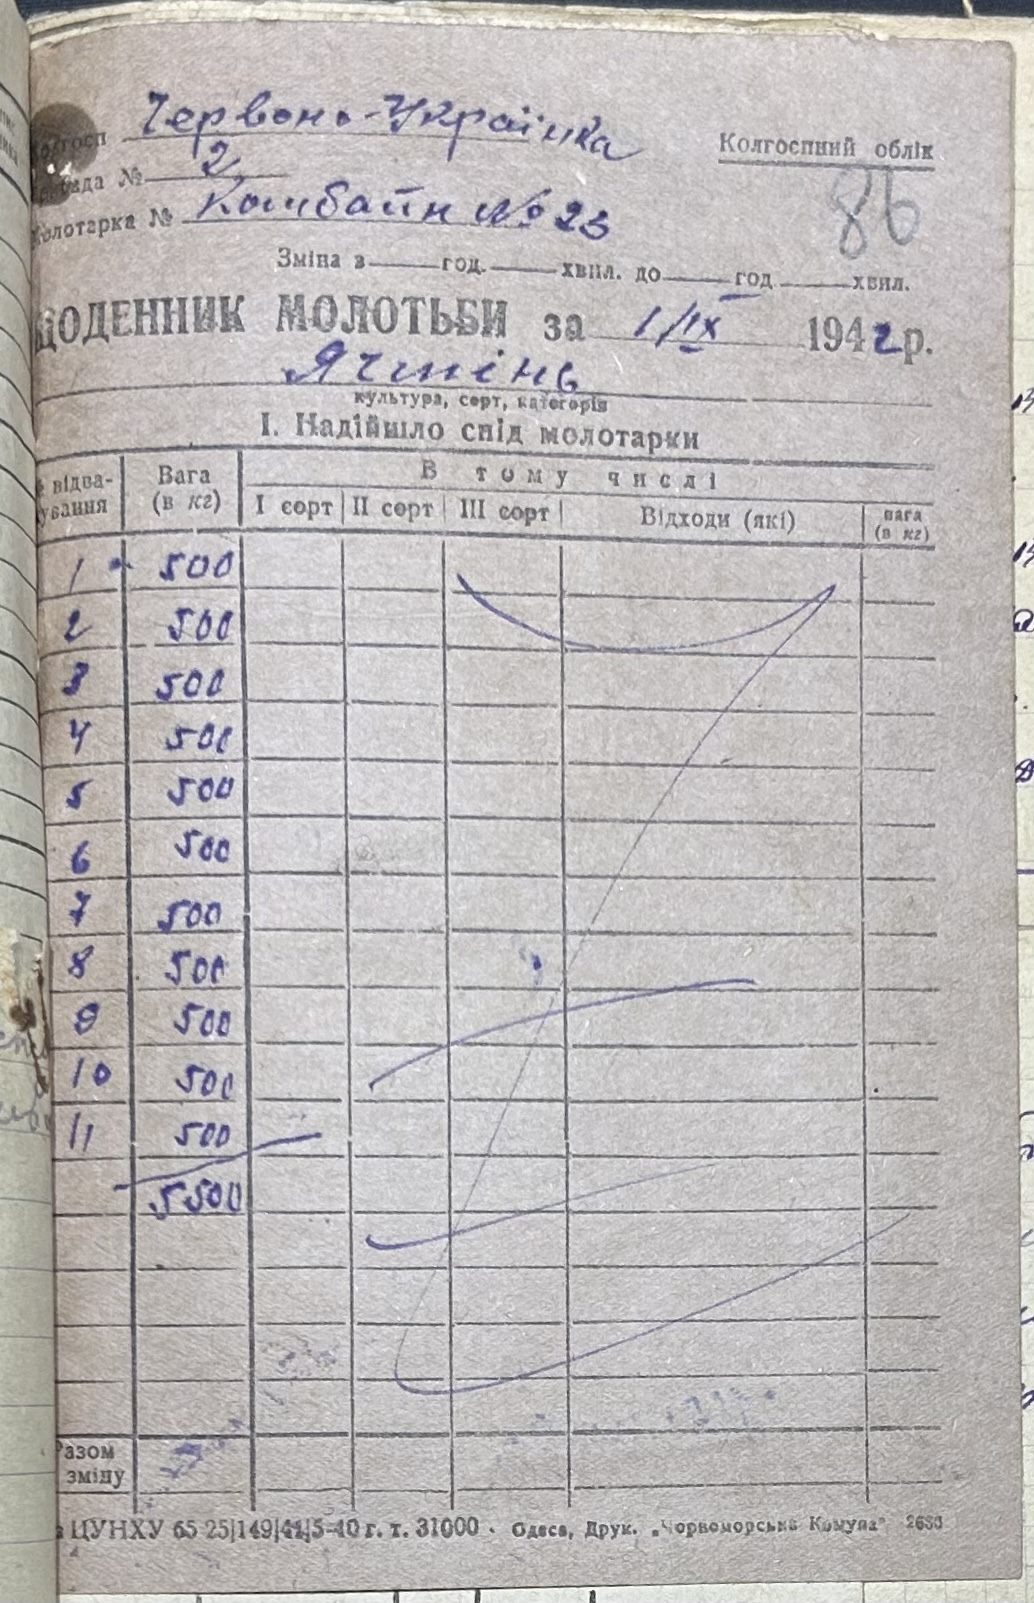 Колгосп Червона-Українка
Колгоспний облік
Бригада № 2
86
Молотарка № Комбайн № 23
Зміна з год. хвил. до год хвил.
ЩОДЕННИК МОЛОТЬБИ за 1/IX 1942 р.
Ячмінь
культура, сорт, категорія
І. Надійшло спід молотарки
№ відва-
жування
Вага
(в кг)
В тому числі
І сорт ІІ сорт ІІІ сорт Відходи (які) вага
(в кг)
1 500
2 500
3 500
4 500
5 500
6 500
7 500
8 500
9 500
10 500
11 500
5500
Разом
зміну
ЦУНХУ 65 25|149|41|5-40 г. т. 31000 · Одеса, Друк. „Чорноморська Комуна" 2633